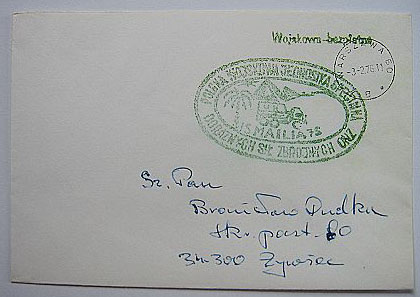 Wojskowa bezpłatna
WARSZAWA 60
-3-2.76-11
POLSKA WOJSKOWA JEDNOSTKA SPECJALNA
ISMAILIA 75
DORAŹNYCH SIŁ ZBROJNYCH ONZ
Sz. Pan
Bronisław Dudka
skr. poczt. 80
34-300 Żywiec